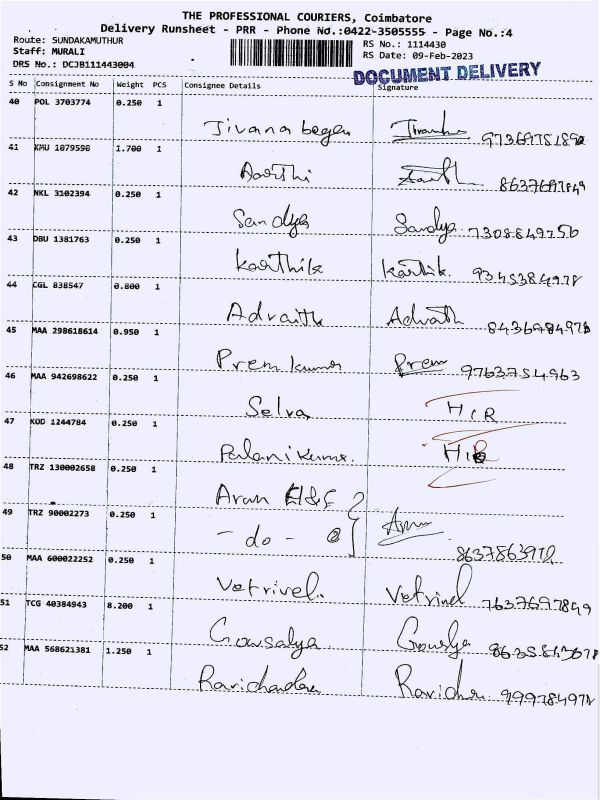 THE PROFESSIONAL COURIERS, Coimbatore
Delivery Runsheet - PRR - Phone No.:0422-3505555 - Page No.:4
Route: SUNDAKAMUTHUR
Staff: MURALI
DRS No.: DCJB111443004
RS No.: 1114430
RS Date: 09-Feb-2023
DOCUMENT DELIVERY
S No Consignment No Weight PCS Consignee Details Signature
40 POL 3703774 0.250 1
Jivana
41 KMU 1079596 1.700 1
Aarthi 8637697849
42 NKL 3102394 0.250 1
Sandya Sandya 7308849750
43 DBU 1381763 0.250 1
Karthik Karthik. 9345384978
44 CGL 838547 0.800 1
Advaith Advath 8436984978
45 MAA 298618614 0.950 1
Prem kumar Prem 9763754963
46 MAA 942698622 0.250 1
Selva HIR
47 KOD 1244784 0.250 1
Palanikumar. HIR
48 TRZ 130002658 0.250 1
Arun
49 TRZ 90002273 0.250 1
- do - Arun
50 MAA 600022252 0.250 1
Vetrivel. Vetrivel 7637697849
51 TCG 40384943 8.200 1
Gowsalya Gowslya
52 MAA 568621381 1.250 1
Ravichandran